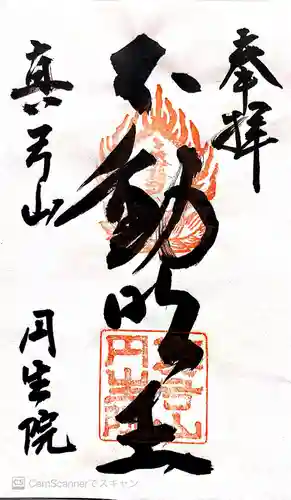 奉拝
不動明王
真弓山
円生院
CS CamScannerでスキャン